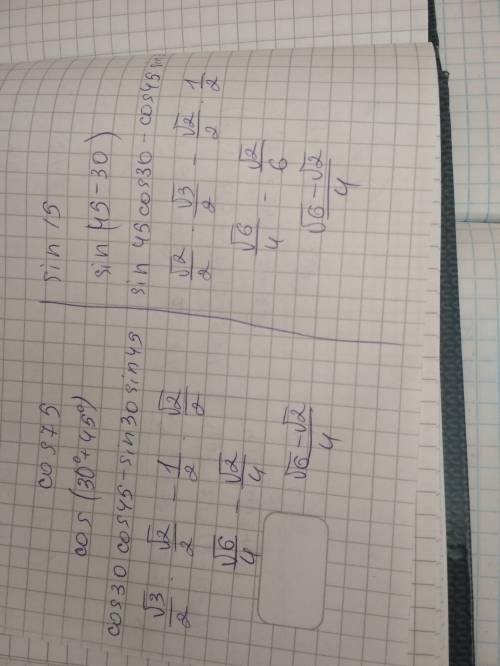 cos75
cos (30°+45°)
cos30 cos45-sin30sin45
√3/2 · √2/2 - 1/2 · √2/2
√6/4 - √2/4
√6-√2/4
sin 15
sin (45-30)
sin 45 cos30 - cos45 sin
√2/2 · √3/2 - √2/2 · 1/2
√6/4 - √2/6
√6-√2/4